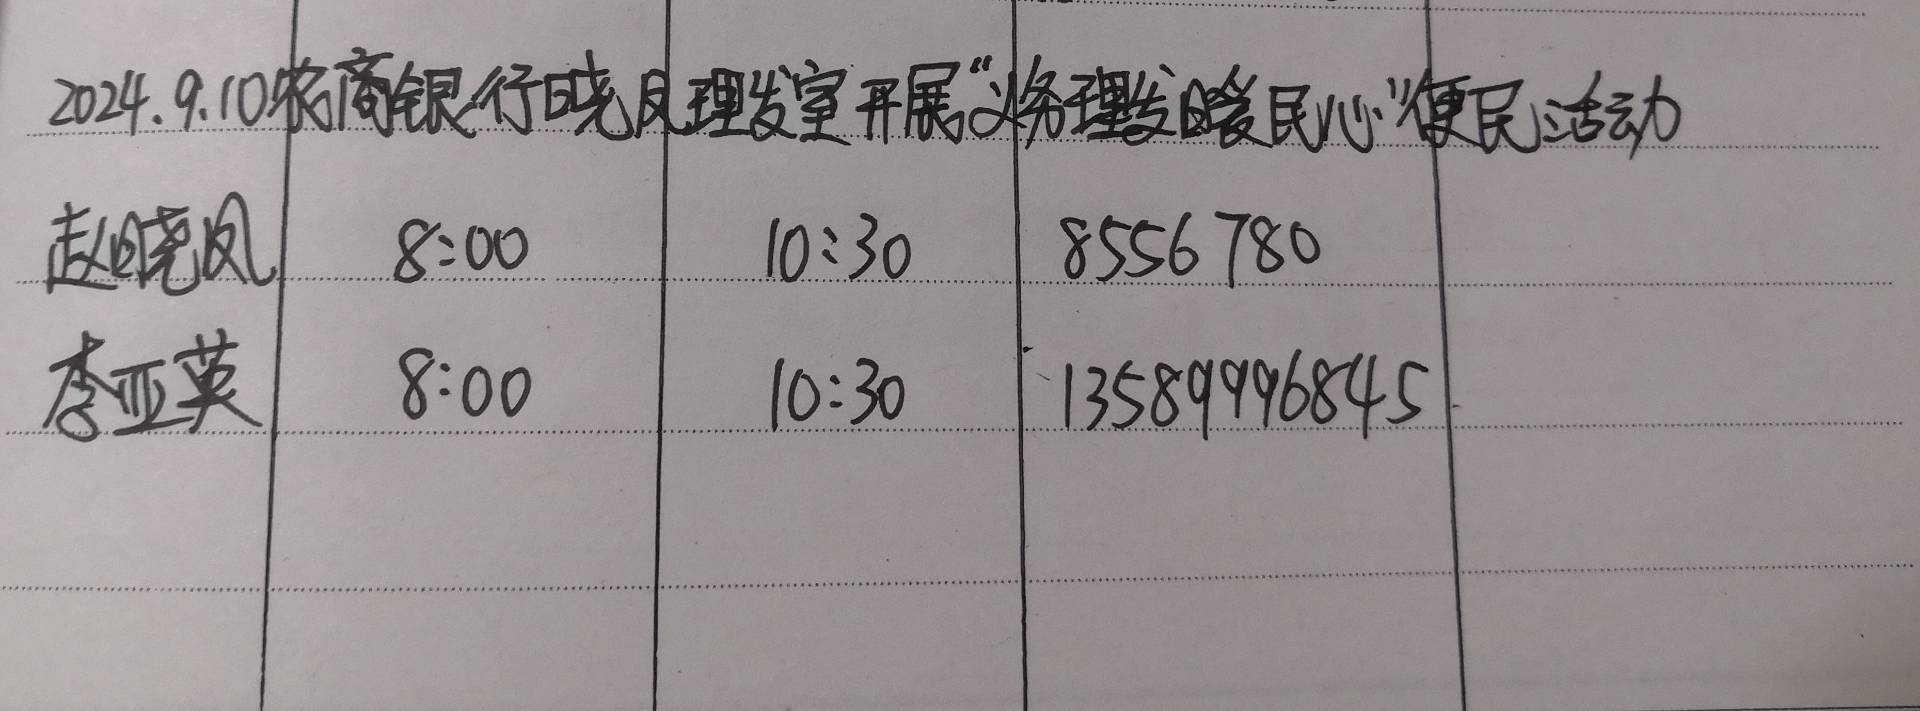 2024.9.10农商银行晓凤理发室开展“义务理发暖民心”便民活动
赵晓凤 8:00 10:30 8556780
李亚英 8:00 10:30 13589996845